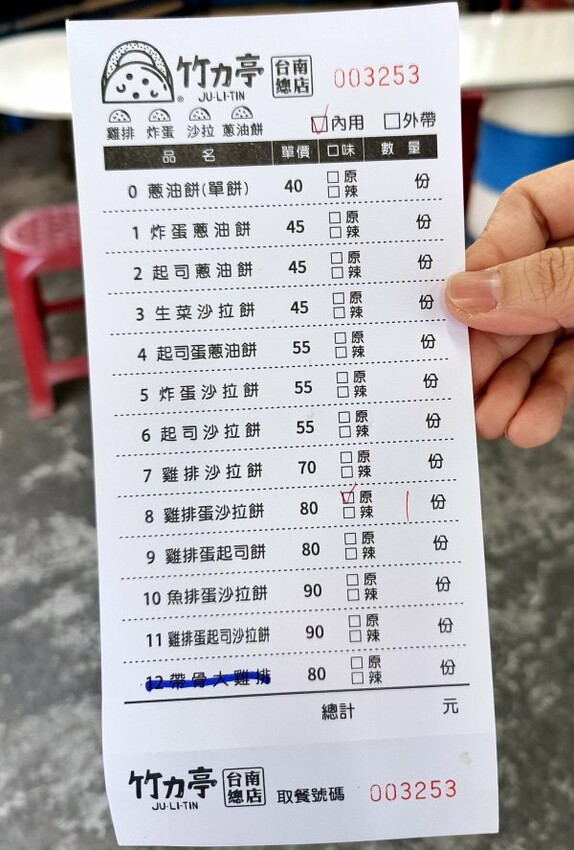 竹力亭 台南總店 003253
JU-LI-TIN
雞排 炸蛋 沙拉 蔥油餅 內用 外帶
品名 單價 口味 數量
0 蔥油餅(單餅) 40 原 辣 份
1 炸蛋蔥油餅 45 原 辣 份
2 起司蔥油餅 45 原 辣 份
3 生菜沙拉餅 45 原 辣 份
4 起司蛋蔥油餅 55 原 辣 份
5 炸蛋沙拉餅 55 原 辣 份
6 起司沙拉餅 55 原 辣 份
7 雞排沙拉餅 70 原 辣 份
8 雞排蛋沙拉餅 80 原 辣 1 份
9 雞排蛋起司餅 80 原 辣 份
10 魚排蛋沙拉餅 90 原 辣 份
11 雞排蛋起司沙拉餅 90 原 辣 份
12 帶骨大雞排 80 原 辣 份
總計 元
竹力亭 台南總店 取餐號碼 003253
JU-LI-TIN